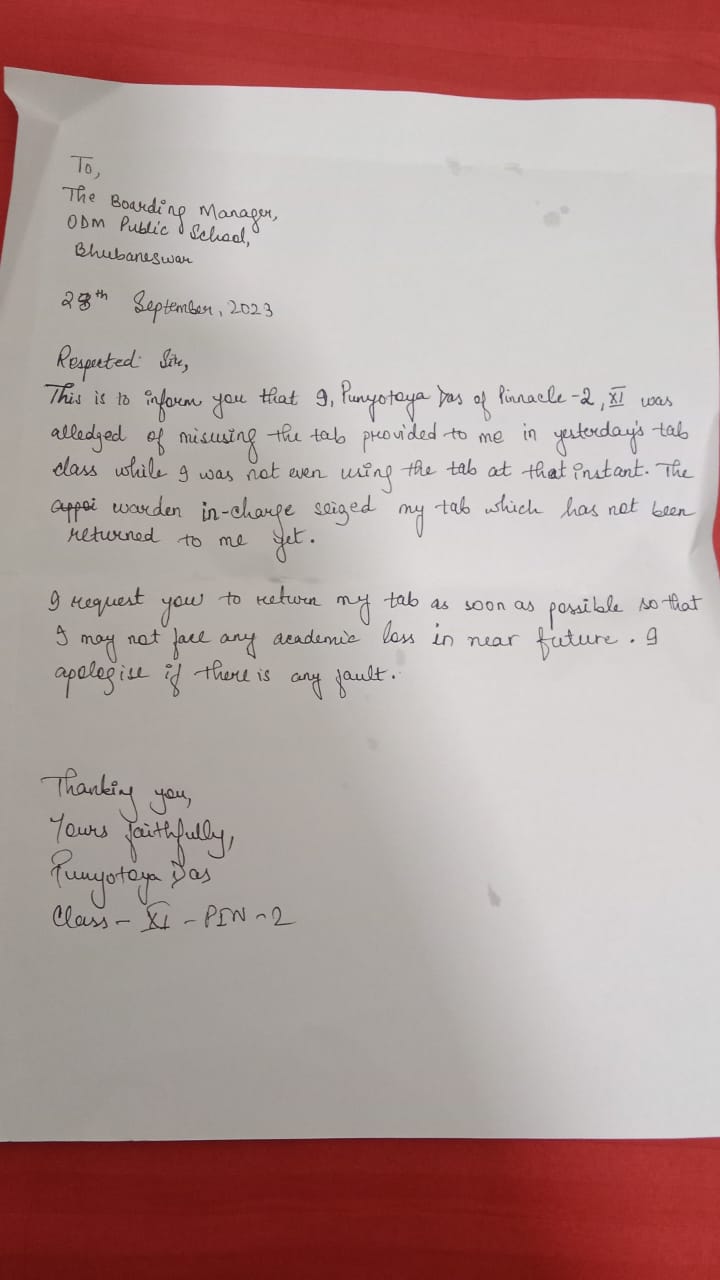 To,
The Boarding Manager,
ODM Public School,
Bhubaneswar
28th September, 2023
Respected Sir,
This is to inform you that I, Punyotoya Das of Pinnacle-2, XI was
alledged of misusing the tab provided to me in yesterday's tab
class while I was not even using the tab at that instant. The
appoi warden in-charge seized my tab which has not been
returned to me yet.
I request you to return my tab as soon as possible so that
I may not face any academic loss in near future. I
apologise if there is any fault.
Thanking you,
Yours faithfully,
Punyotoya Das
Class - XI - PIN-2